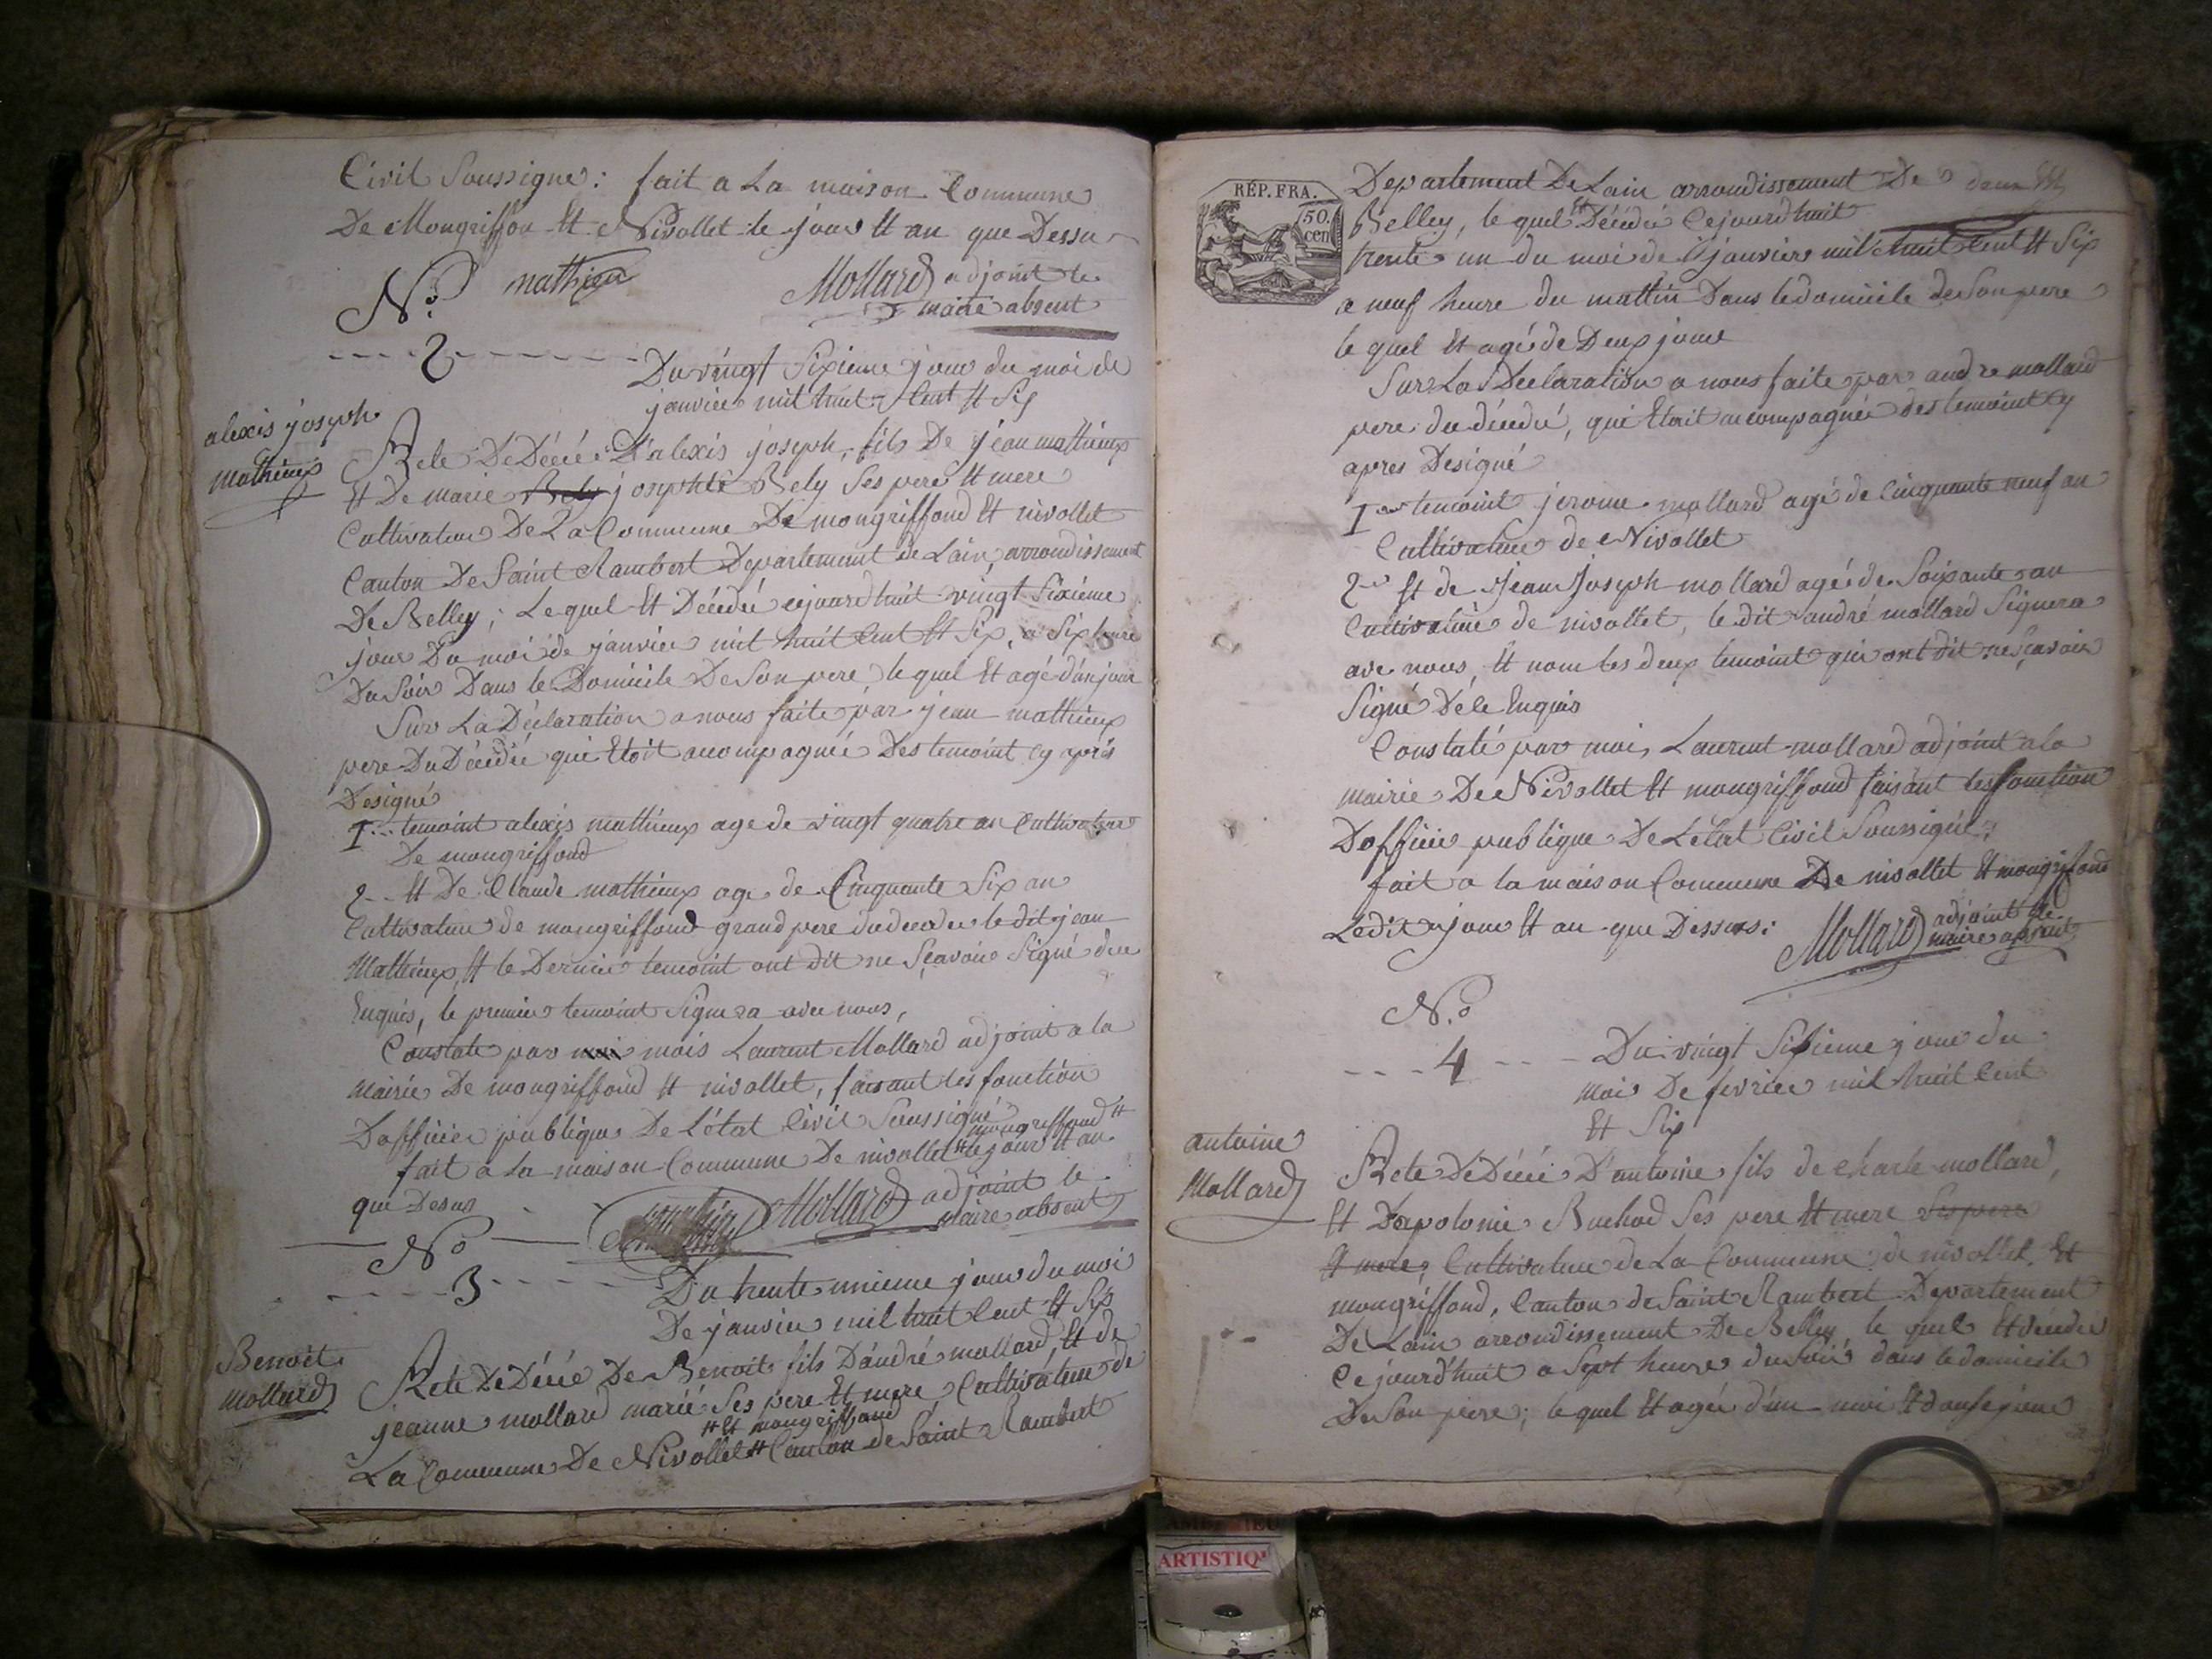 Civil Soussigné: fait a La maison Commune
De Mongriffon Et Nivollet le jour Et an que Dessu
mathieu
Mollard adjoint le
maire absent
No
2
Du vingt Sixieme jour du moi de
janvier mil huit Cent Et Six
alexis joseph
mathieux
Acte De Décé D'alexis joseph, fils De jean mathieux
Et De Marie Bely josephte Bely Ses pere Et mere
Cultivateur De La Commune De mongriffond Et nivollet
Canton De Saint Rambert Departement de Lain, arrondissement
De Belley; Lequel Et Décédé cejourdhuit vingt Sixieme
jour Du moi de janvier mil huit Cent Et Six, a Six heure
Du Soir Dans le Domicile De Son pere, le quel Et agé d'un jour
Sur La Déclaration a nous faite par jean mathieux
pere Du Décédé qui Etoit acompagnée Des temoint cy aprés
Designé
1er temoint alexis mathieux age de vingt quatre an Cultivateur
De mongriffond
2 Et De Claude mathieux age de Cinquante Six an
Cultivateur de mongriffond grand pere du decedee le dit jean
Mathieux, Et le Dernier temoint ont dit ne Sçavoir Signé dee
Enquis, le premier temoint Signera avec nous,
Constate par moi mois Laurent Mollard adjoint a la
Mairie De mongriffond Et nivollet, faisant les fonction
Dofficier publique De L'état Civil Soussigné
mongriffond Et
fait a La maison Commune De nivollet le jour Et an
que Desus
Mollard adjoint le
Maire absent
No
3
Du trente unieme jour du moi
De janvier mil huit Cent Et Six
Benoit
Mollard
Acte De Décé De Benoit fils D'andré mollard, Et de
jeanne mollard marié Ses pere Et mere, Cultivateur de
Et mongriffond
La Commune De Nivollet Canton de Saint Rambert
RÉP. FRA.
50.
cen
Departement De Lain arrondissement De
Belley, le quel Et Décédé Cejourdhuit
trente un du moi de janvier mil huit Cent Et Six
a neuf heure du mattin Dans le domicile de Son pere
le quel Et agé de Deux jour
Sur La Declaration a nous faite par andre mollard
pere du décedé, qui Etoit acompagnée des temoint cy
apres Designé
1er temoint jerome mollard agé de Cinquante neuf an
Cultivateur de Nivollet
2 Et de Jean Joseph mollard agé de Soixante an
Cultivateur de nivollet, le dit andré mollard Signera
ave nous, Et nom les deux temoint qui ont dit ne Sçavoir
Signé De le Enquis
Constaté par moi, Laurent mollard adjoint a la
mairie De Nivollet Et mongriffond faisant les fonction
Dofficier publique De Létat Civil Soussigné;
fait a la maison Commune De nivollet Et mongriffond
Ledit jour Et an que Dessus:
Mollard adjoint le
maire absent
No
4
Du vingt Sixieme jour du
Moi De fevrier mil huit Cent
Et Six
antoine
Mollard
Acte De Décé D'antoine fils de charle mollard,
Et Dapolonie Ses pere Et mere Ses pere
Et mere, Cultivateur de La Commune de nivollet Et
mongriffond, Canton de Saint Rambert Departement
De Lain arrondissement De Belley, le quel Et décédé
Cejourd'huit a Sept heure du Soir dans le domicile
De Son pere; le quel Et agée d'un moi Et douse jour
AMBERIEU
ARTISTIQ